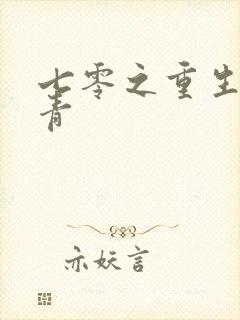 七零之重生
青
亦妖言